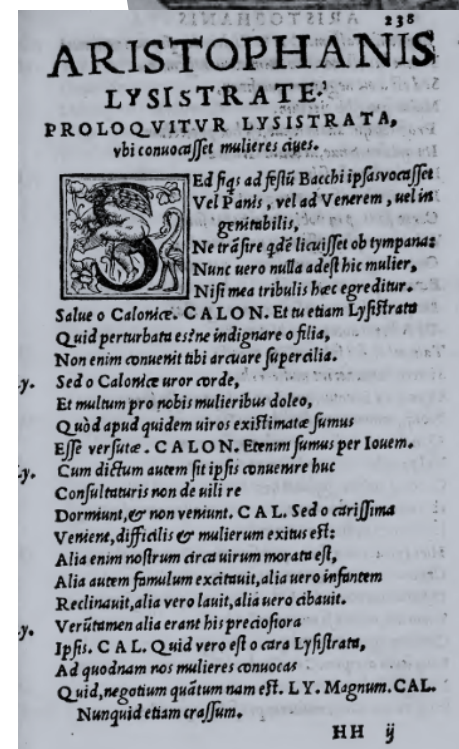 238
ARISTOPHANIS
LYSISTRATE.
PROLOQVITVR LYSISTRATA,
vbi conuocasset mulieres ciues.
SEd siqs ad festū Bacchi ipsas vocasset
Vel Panis, vel ad Venerem, uel in
genitabilis,
Ne trāsire qdē licuisset ob tympana:
Nunc uero nulla adest hic mulier,
Nisi mea tribulis hæc egreditur.
Salue o Calonicæ. CALON. Et tu etiam Lysistrata
Quid perturbata es? ne indignare o filia,
Non enim conuenit tibi arcuare supercilia.
y. Sed o Calonicæ uror corde,
Et multum pro nobis mulieribus doleo,
Quòd apud quidem uiros existimatæ sumus
Esse versutæ. CALON. Etenim sumus per Iouem.
y. Cum dictum autem sit ipsis conuenire huc
Consultaturis non de uili re
Dormiunt, & non veniunt. CAL. Sed o carissima
Veniene, difficilis & mulierum exitus est:
Alia enim nostrum circa uirum morata est,
Alia autem famulum excitauit, alia uero infantem
Reclinauit, alia vero lauit, alia uero cibauit.
y. Verūtamen alia erant his preciosiora
Ipsis. CAL. Quid vero est o cara Lysistrata,
Ad quodnam nos mulieres conuocas
Quid, negotium quātum nam est. LY. Magnum. CAL.
Nunquid etiam crassum.
HH ij